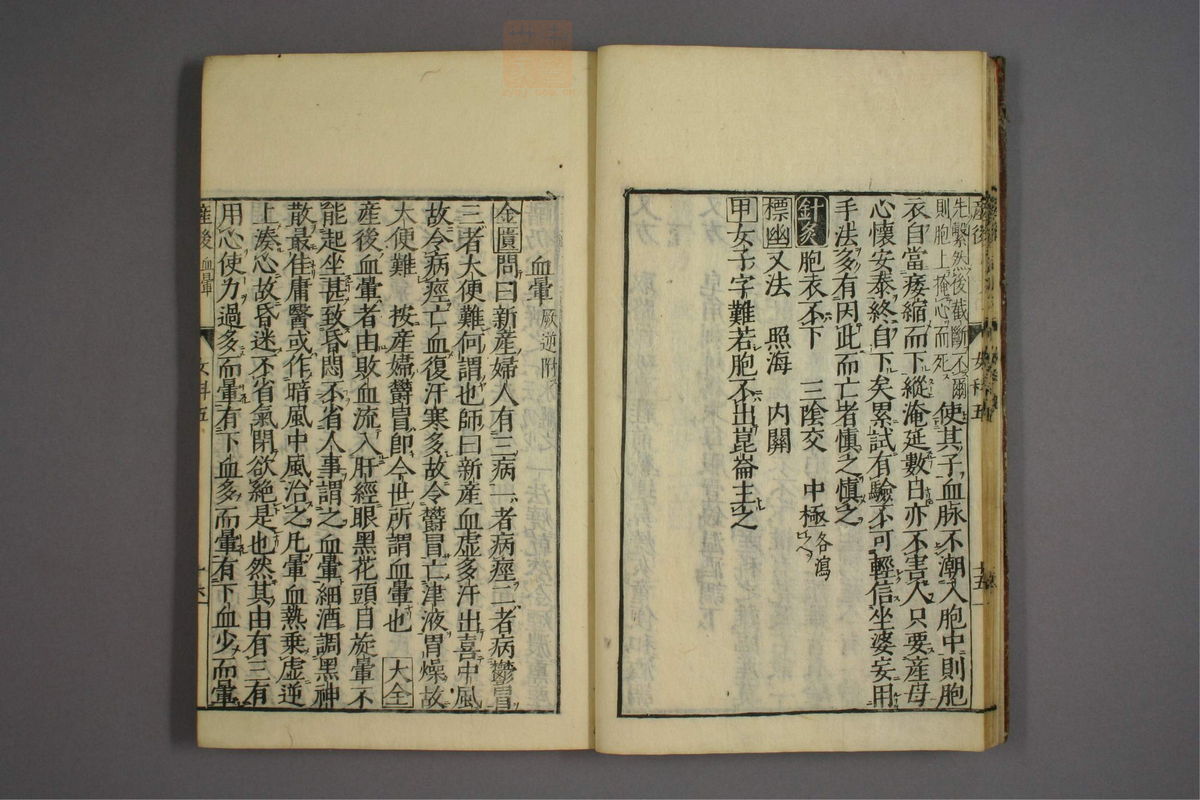 先繫然後截斷不爾
則胞上掩心而死
使其子血脉不潮入胞中則胞
衣自當痿縮而下縱淹延數日亦不害人只要產母
心懷安泰終自下矣累試有驗不可輕信坐婆妄用
手法多有因此而亡者慎之慎之
針灸 胞衣不下 三陰交 中極各瀉
標幽又法 照海 內關
甲女子字難若胞不出崑崙主之
血暈厥逆附
金匱問曰新產婦人有三病一者病痙二者病鬱冒
三者大便難何謂也師曰新產血虛多汗出喜中風
故令病痙亡血復汗寒多故令鬱冒亡津液胃燥故
大便難 按產婦鬱冒即今世所謂血暈也 大全
產後血暈者由敗血流入肝經眼黑花頭目旋暈不
能起坐甚致昏悶不省人事謂之血暈細酒調黑神
散最佳庸醫或作暗風中風治之凡暈血熱乘虛逆
上湊心故昏迷不省氣閉欲絶是也然其由有三有
用心使力過多而暈有下血多而暈有下血少而暈
產後 血暈 女科五